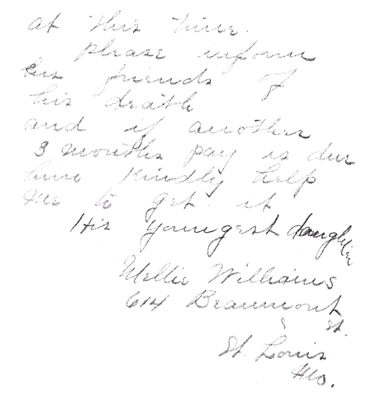 at this time.
please inform
his friends of
his death
and if another
3 months pay is due
him kindly help
me to get it
His youngest daughter
Mellie Williams
614 Beaumont
St.
St. Louis
Mo.